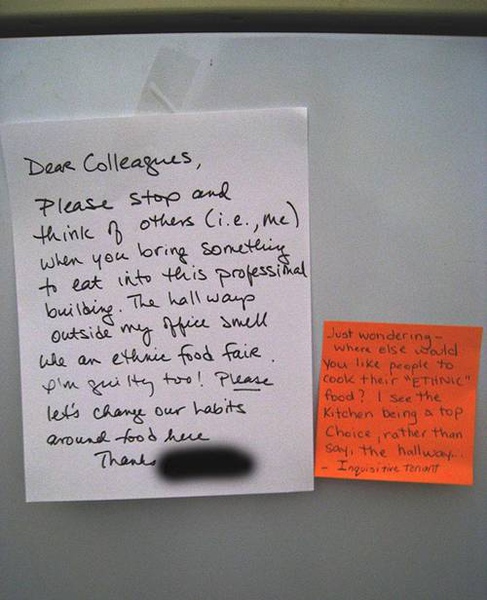 Dear Colleagues,
Please stop and
think of others (i.e., me)
when you bring something
to eat into this professional
building. The hallways
outside my office smell
like an ethnic food fair.
I'm guilty too! Please
let's change our habits
around food here
Thanks
Just wondering-
where else would
you like people to
cook their "ETHNIC"
food? I see the
kitchen being a top
choice, rather than
say, the hallway...
- Inquisitive Tenant